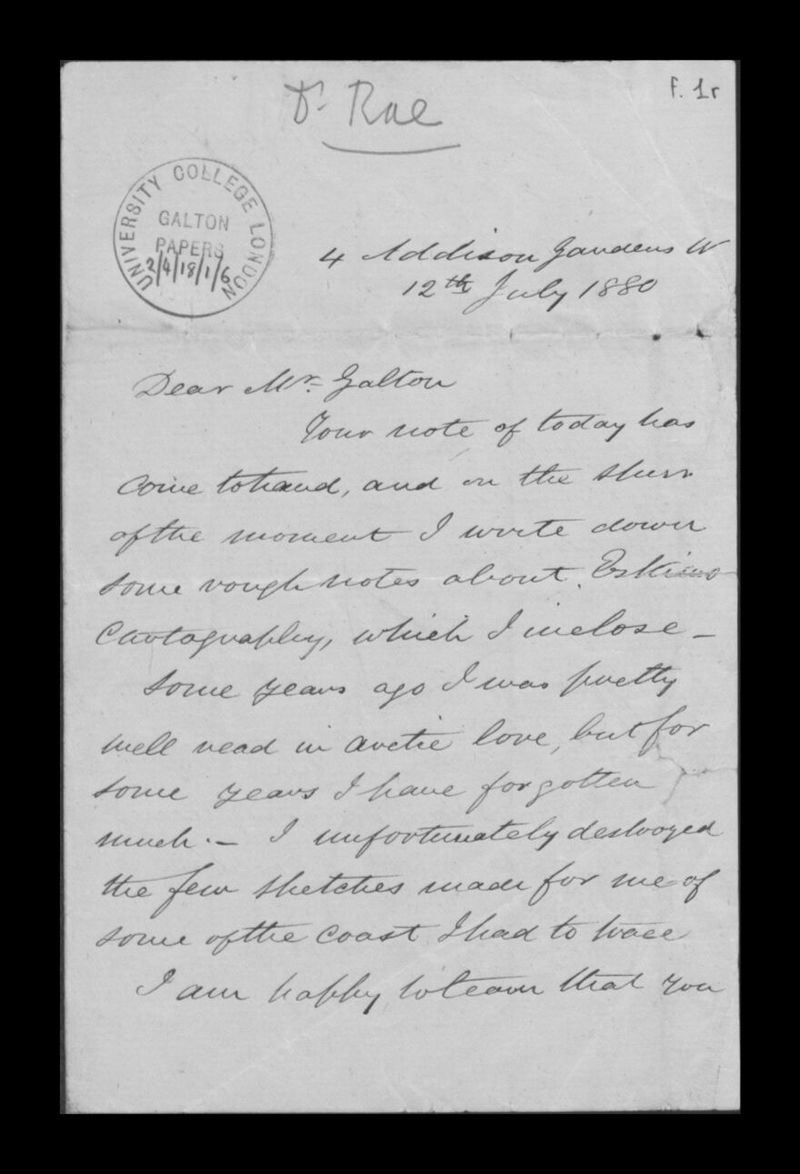 F. 1r
Dr Rae
UNIVERSITY COLLEGE LONDON
GALTON
PAPERS
2/4/18/1/6
4 Addison Gardens W
12th July 1880
Dear Mr. Galton
Your note of today has
come to hand, and on the spur
of the moment I write down
some rough notes about Eskimo
Cartography, which I inclose –
Some years ago I was pretty
well read in arctic lore, but for
some years I have forgotten
much. – I unfortunately destroyed
the few sketches made for me of
some of the coast I had to trace
I am happy to learn that you